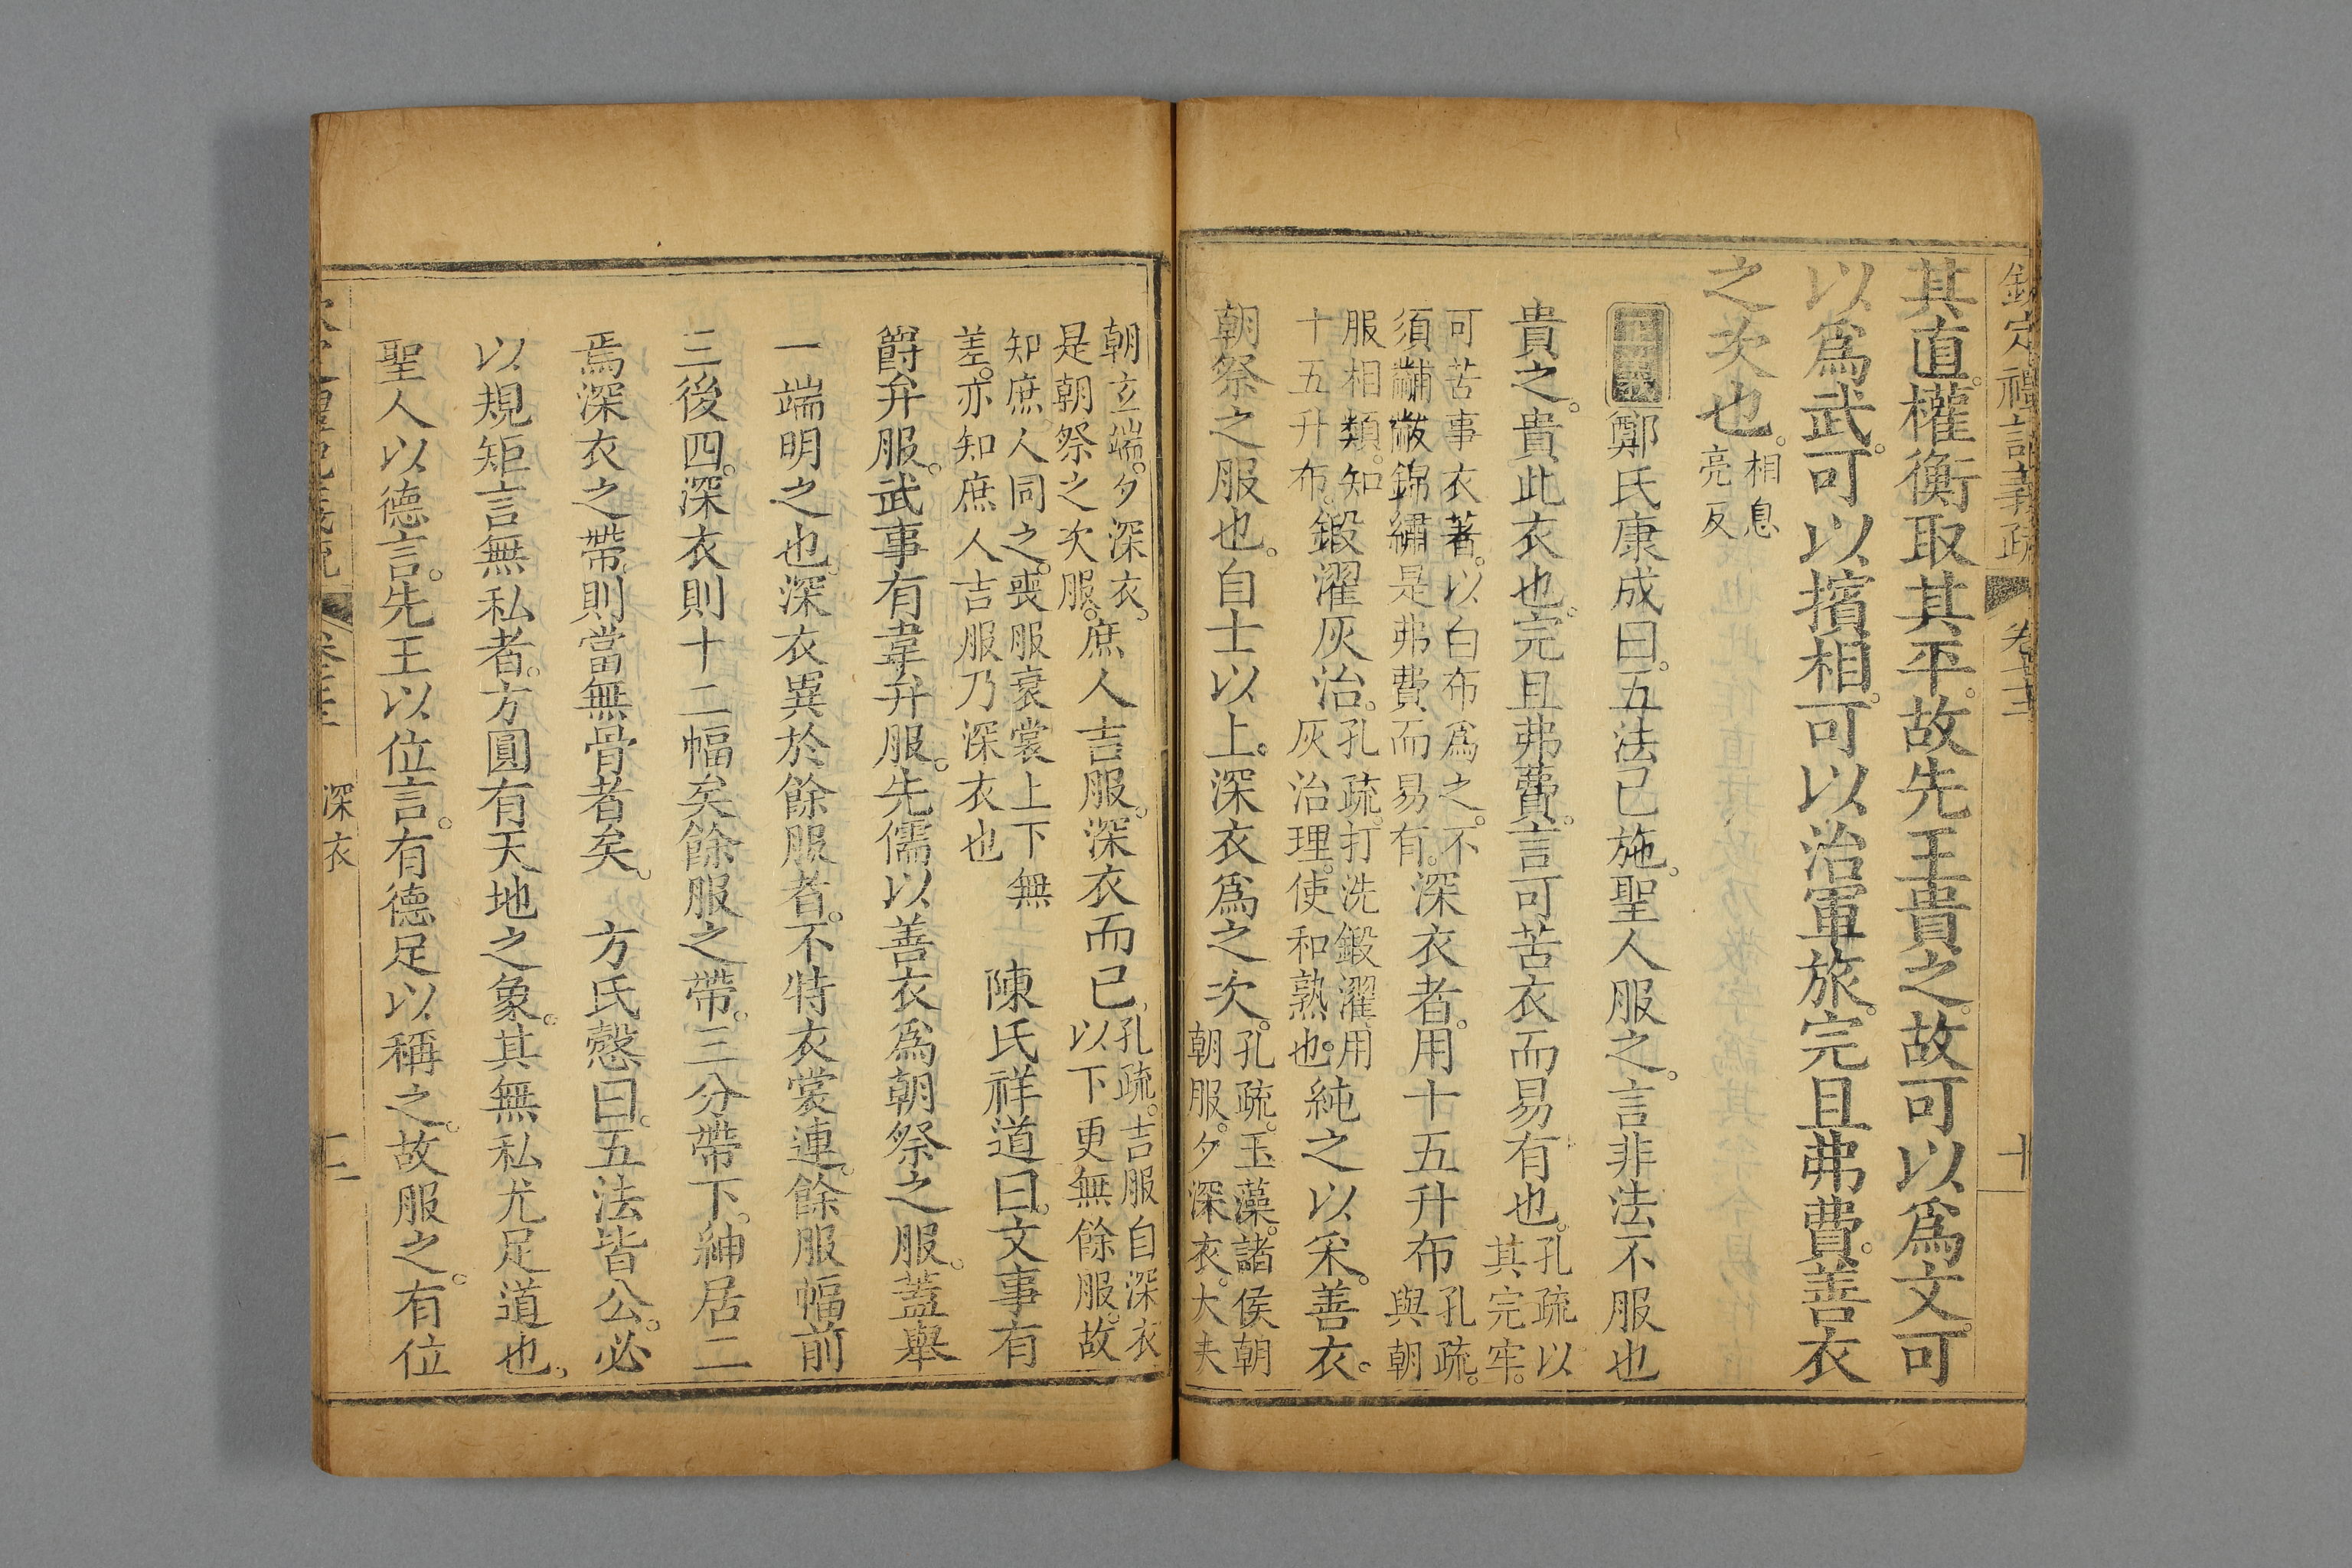 欽定禮記義疏 卷 十
其直。權衡取其平。故先王貴之。故可以爲文。可
以爲武。可以擯相。可以治軍旅。完且弗費。善衣
之次也。相息亮反
正義鄭氏康成曰。五法已施。聖人服之。言非法不服也
貴之。貴此衣也。完且弗費。言可苦衣而易有也。孔疏以其完牢。
可苦事衣著。以白布爲之。不須黼黻錦繡是弗費而易有。深衣者。用十五升布孔疏。與朝
服相類。知十五升布。鍛濯灰治。孔疏。打洗鍛濯用灰治理。使和熟也。純之以采。善衣。
朝祭之服也。自士以上。深衣爲之次。孔疏。玉藻。諸侯朝朝服。夕深衣。大夫
朝玄端。夕深衣。是朝祭之次服。庶人吉服。深衣而已。孔疏。吉服自深衣以下更無餘服。故
知庶人同之。喪服衰裳上下無差。亦知庶人吉服乃深衣也 陳氏祥道曰。文事有
爵弁服。武事有韋弁服。先儒以善衣爲朝祭之服。蓋舉
一端明之也。深衣異於餘服者。不特衣裳連。餘服幅前
三後四。深衣則十二幅矣餘服之帶。三分帶下。紳居二
焉深衣之帶。則當無骨者矣。 方氏慤曰。五法皆公。必
以規矩言無私者。方圓有天地之象。其無私尤足道也。
聖人以德言。先王以位言。有德足以稱之。故服之。有位
深衣
十一